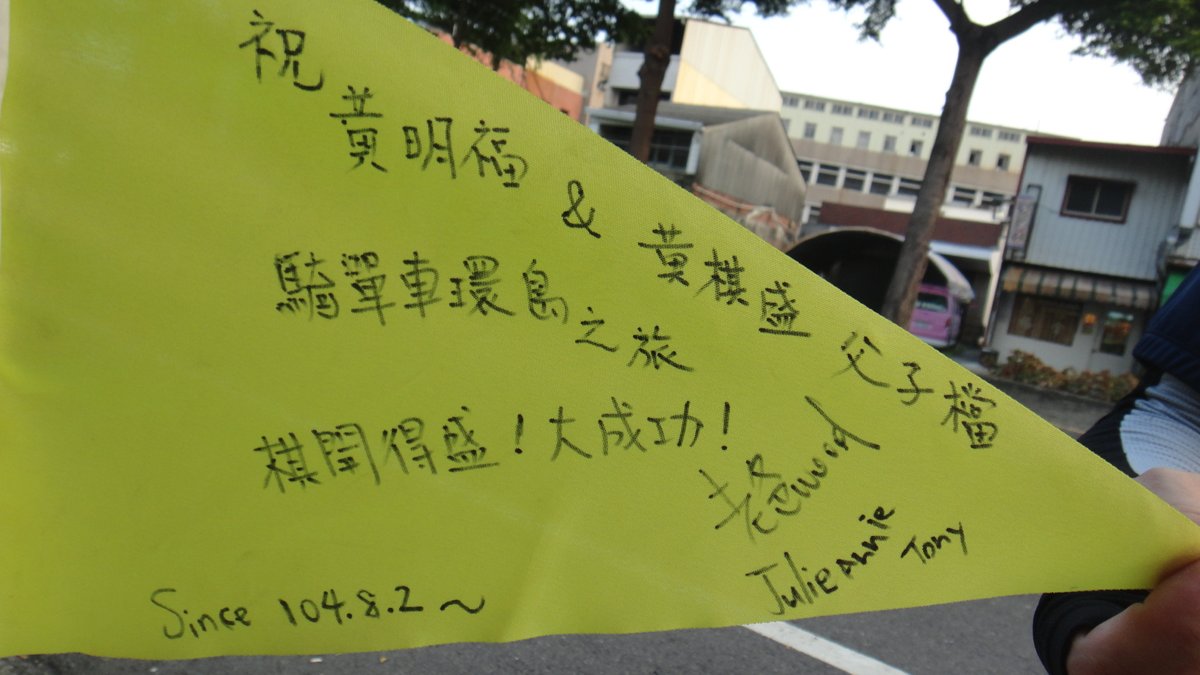 祝 黃明福 & 黃棋盛 父子檔
騎單車環島之旅
棋開得盛！大成功！
老爸wood
Julie Annie Tony
Since 104.8.2～